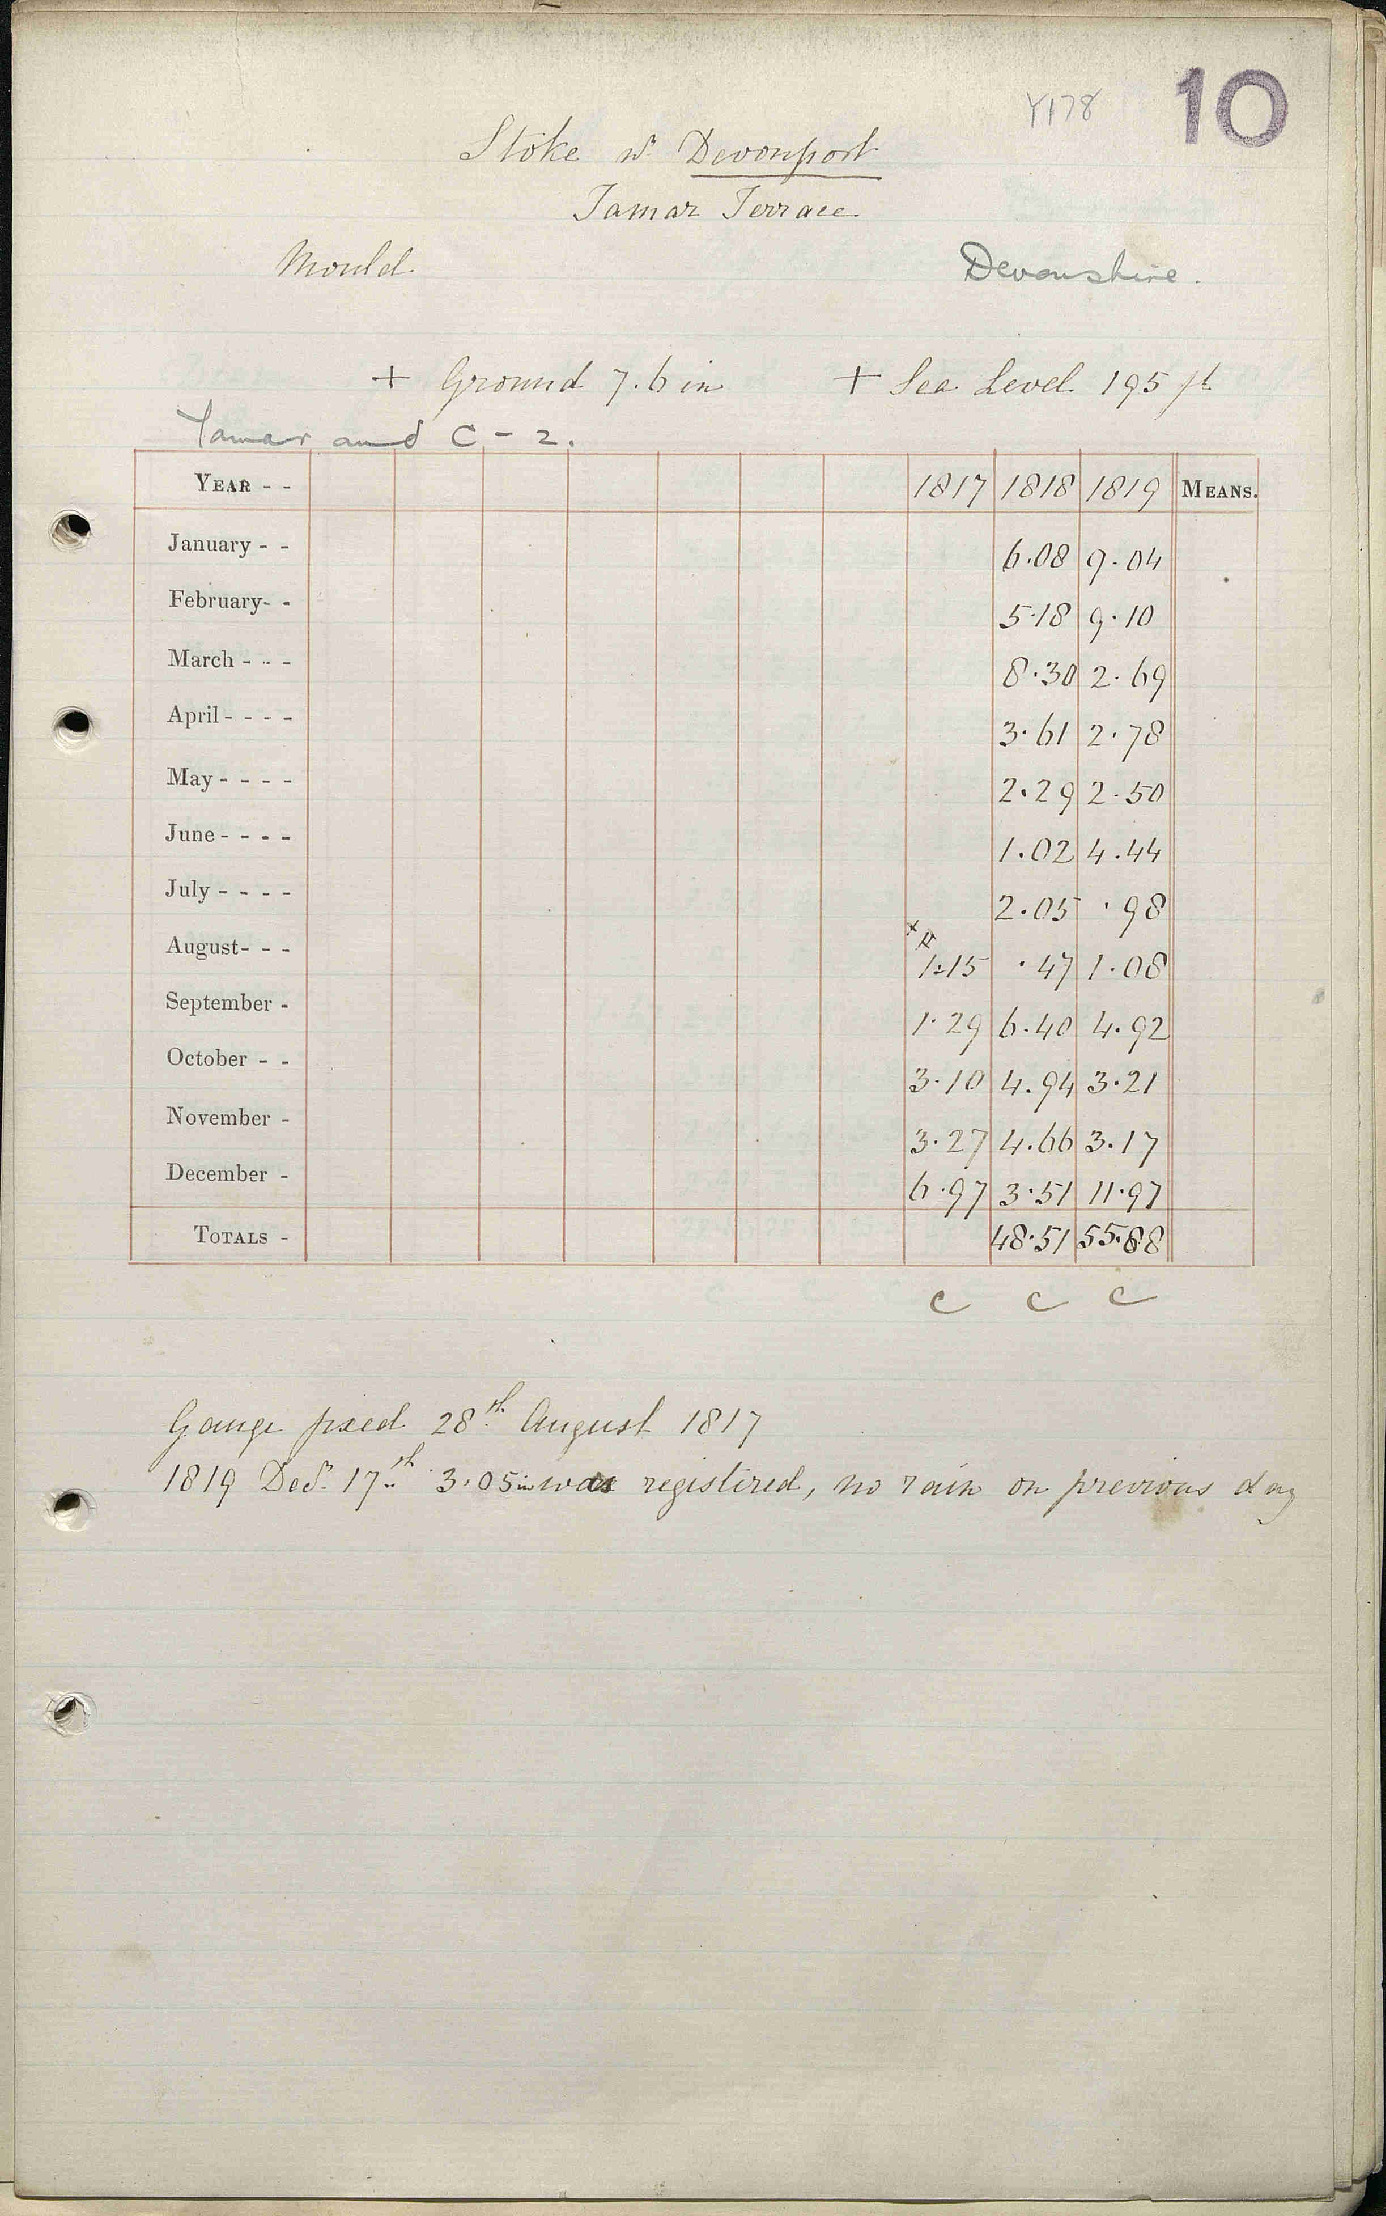 Y178 10
Stoke nr Devonport
Tamar Terrace
Mould. Devonshire.
+ Ground 7.6 in + Sea Level 195 ft
Tamar and C - 2.
YEAR - - 1817 1818 1819 MEANS.
January - - 6.08 9.04
February- - 5.18 9.10
March - - - 8.30 2.69
April - - - - 3.61 2.78
May - - - - 2.29 2.50
June - - - - 1.02 4.44
July - - - - 2.05 .98
August- - - 1.15 .47 1.08
September - 1.29 6.40 4.92
October - - 3.10 4.94 3.21
November - 3.27 4.66 3.17
December - 6.97 3.51 11.97
TOTALS - 48.51 55.88
C C C
Gauge fixed 28th August 1817
1819 Decr. 17th 3.05 in was registired, no rain on previous day